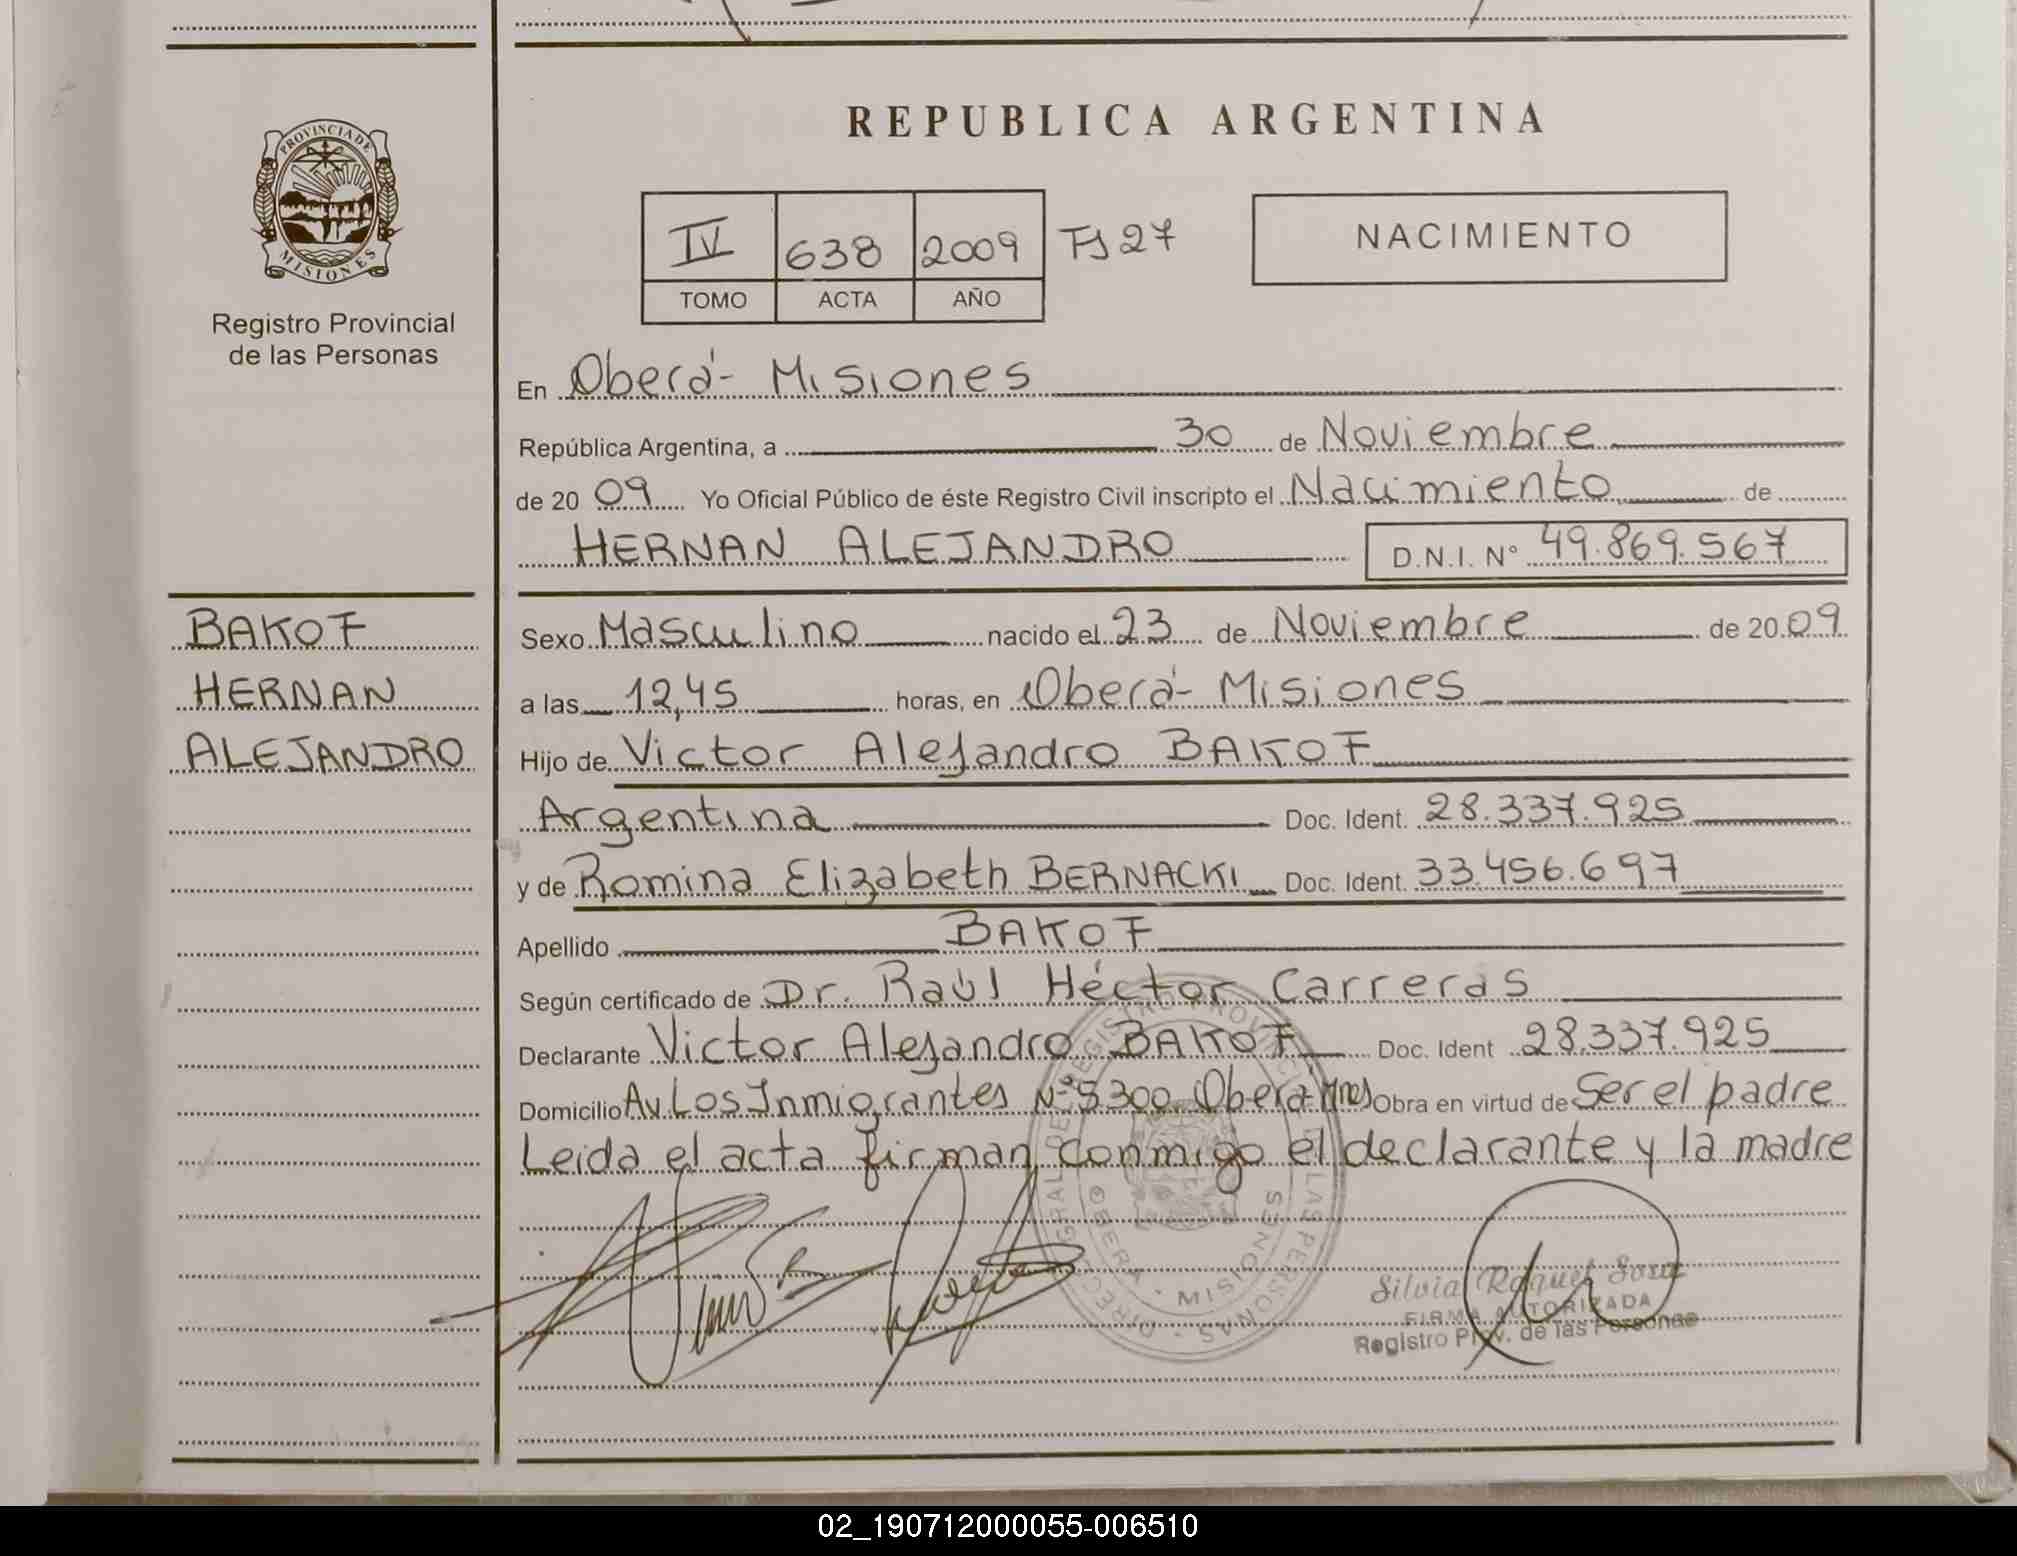 REPUBLICA ARGENTINA
PROVINCIA DE
MISIONES
Registro Provincial
de las Personas
IV 638 2009 Fs 27
TOMO ACTA AÑO
NACIMIENTO
En Oberá - Misiones
República Argentina, a 30 de Noviembre
de 20 09 Yo Oficial Público de éste Registro Civil inscripto el Nacimiento de
HERNAN ALEJANDRO D.N.I. N° 49.869.567
BAKOF
HERNAN
ALEJANDRO
Sexo Masculino nacido el 23 de Noviembre de 20 09
a las 12,45 horas, en Oberá - Misiones
Hijo de Victor Alejandro BAKOF
Argentina Doc. Ident. 28.337.925
y de Romina Elizabeth BERNACKI Doc. Ident. 33.456.697
Apellido BAKOF
Según certificado de Dr. Raúl Héctor Carreras
Declarante Victor Alejandro BAKOF Doc. Ident 28.337.925
Domicilio Av. Los Inmigrantes N° 5300 Oberá - Mnes Obra en virtud de Ser el padre
Leida el acta firman conmigo el declarante y la madre
OBERA - MISIONES
Silvia Raquel Sosa
FIRMA AUTORIZADA
Registro Prov. de las Personas
02_190712000055-006510